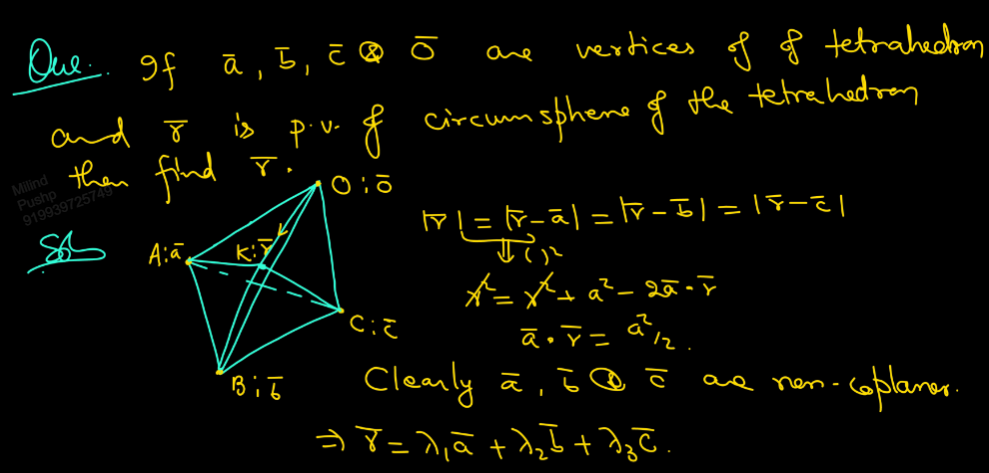 Que. If a̅, b̅, c̅ & O̅ are vertices of of tetrahedron
and r̅ is p.v. of circumsphere of the tetrahedron
then find r̅.
Milind
Pushp
919939725749
Sol
O : o̅
A : a̅
K : r̅
C : c̅
B : b̅
|r̅| = |r̅ - a̅| = |r̅ - b̅| = |r̅ - c̅|
⇓ ( )²
r² = r² + a² - 2a̅ · r̅
a̅ · r̅ = a²/2 .
Clearly a̅, b̅ & c̅ are non-coplanar.
⇒ r̅ = λ₁a̅ + λ₂b̅ + λ₃c̅.